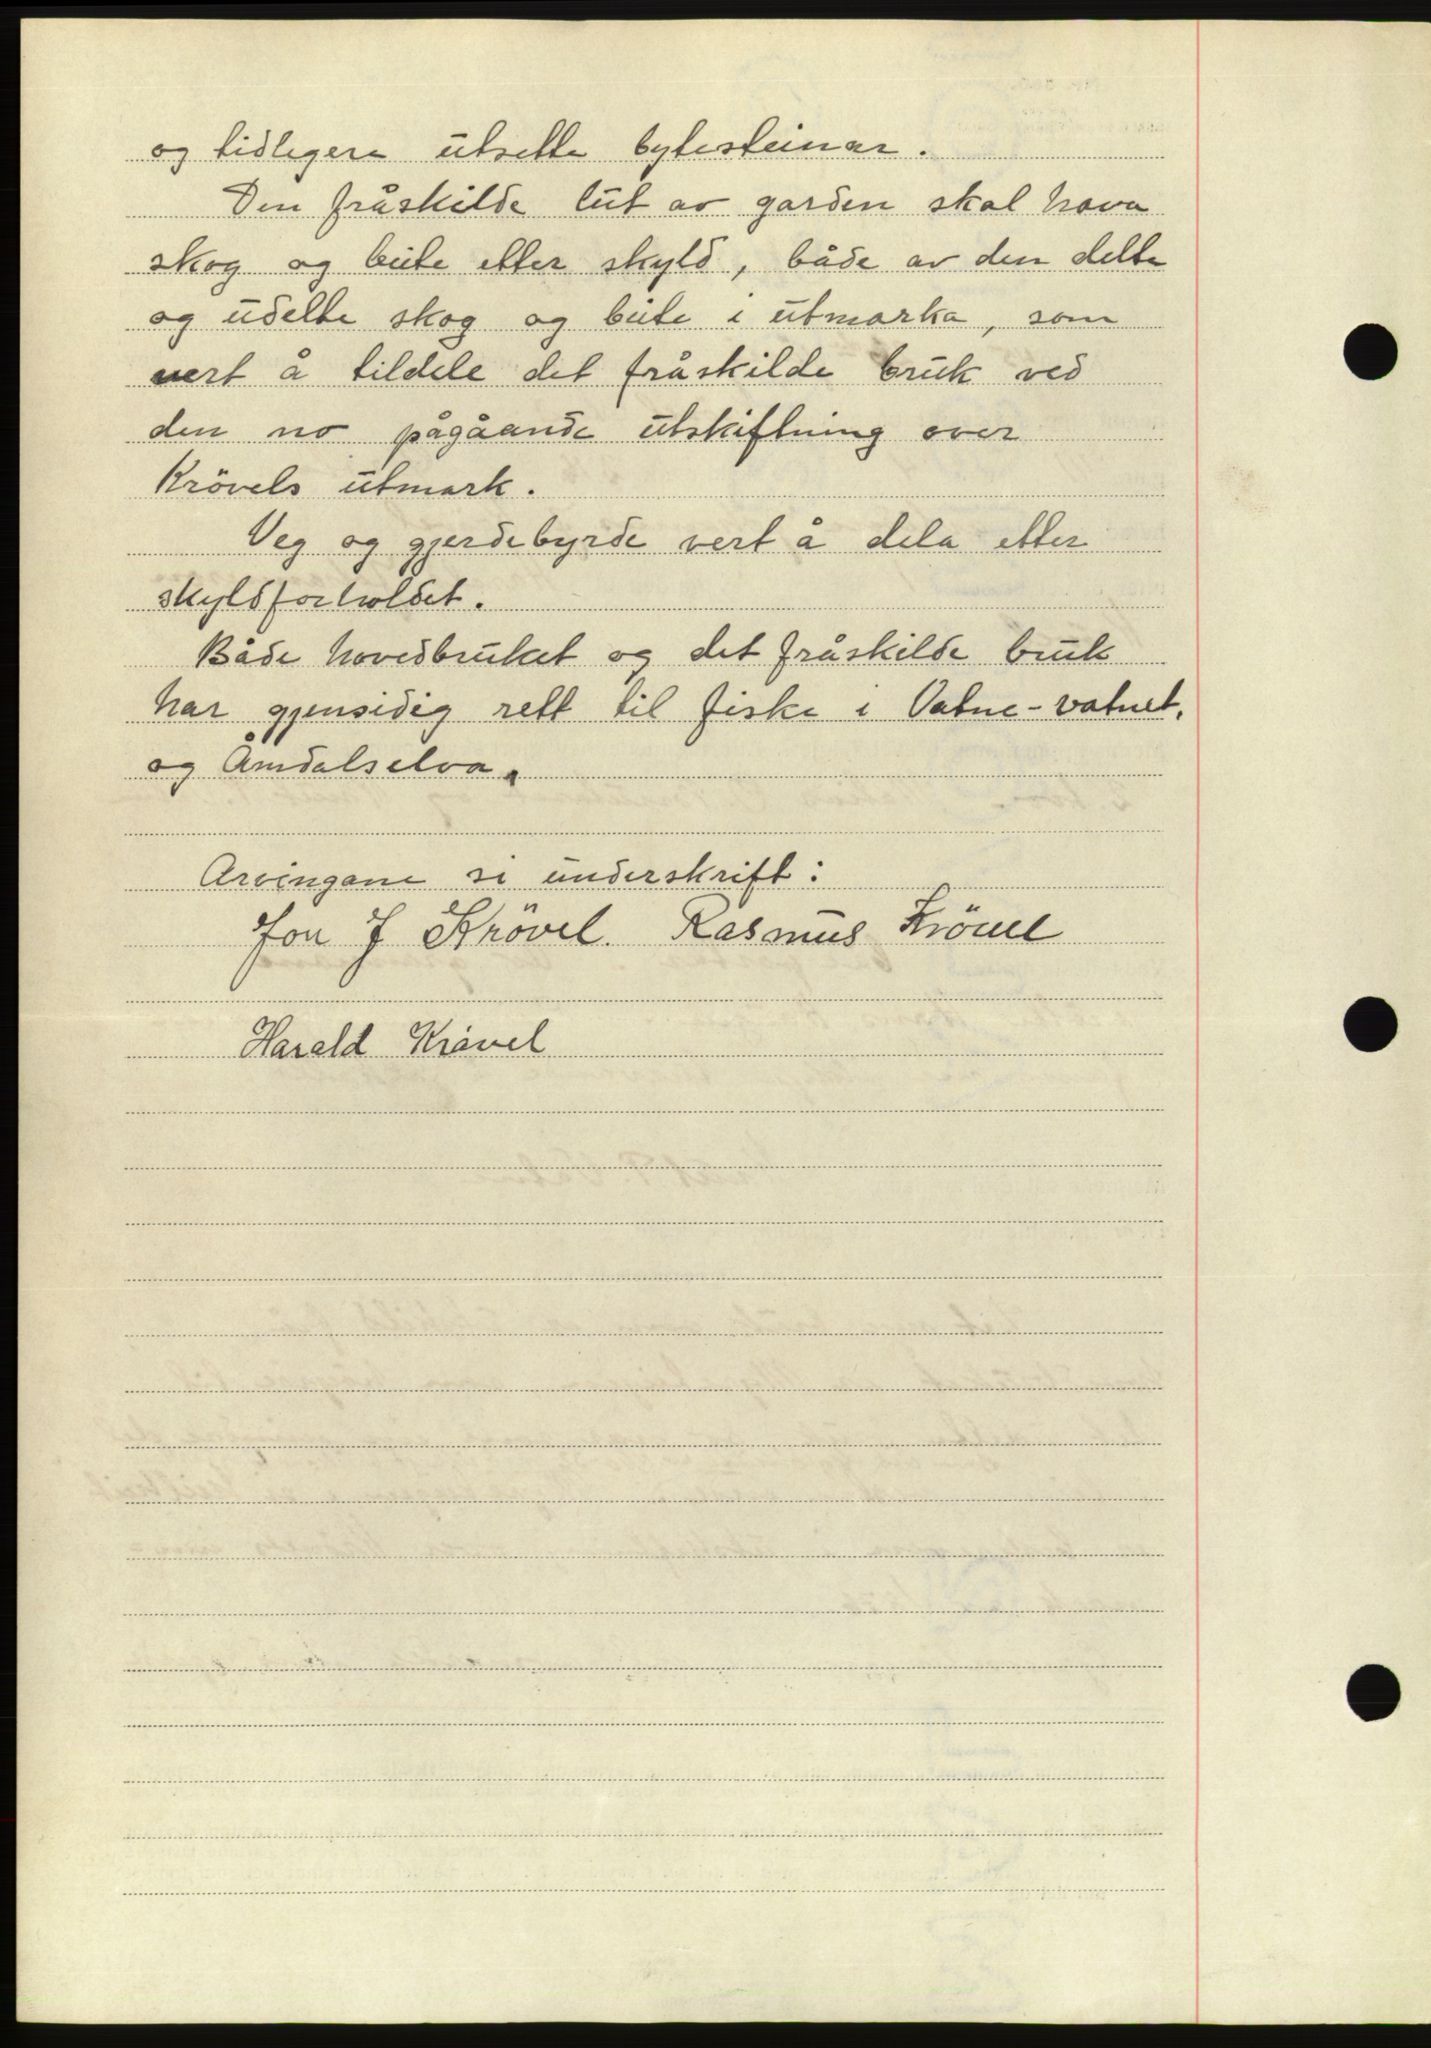 og tidlegere utsette bytesteinar.
Den fråskilde lut av garden skal hava
skog og beite etter skyld, både av den delte
og udelte skog og beite i utmarka, som
vert å tildele det fråskilde bruk ved
den no pågåande utskiftning over
Krövels utmark.
Veg og gjerdebyrde vert å dela etter
skyldforholdet.
Både hovedbruket og det fråskilde bruk
har gjensidig rett til fiske i Vatne-vatnet,
og Åmdalselva.
Arvingane si underskrift:
Jon J Krövel. Rasmus Krövel
Harald Krövel